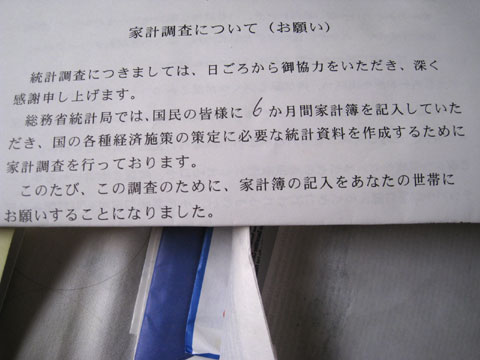 家計調査について（お願い）
統計調査につきましては、日ごろから御協力をいただき、深く
感謝申し上げます。
総務省統計局では、国民の皆様に 6 か月間家計簿を記入していた
だき、国の各種経済施策の策定に必要な統計資料を作成するために
家計調査を行っております。
このたび、この調査のために、家計簿の記入をあなたの世帯に
お願いすることになりました。